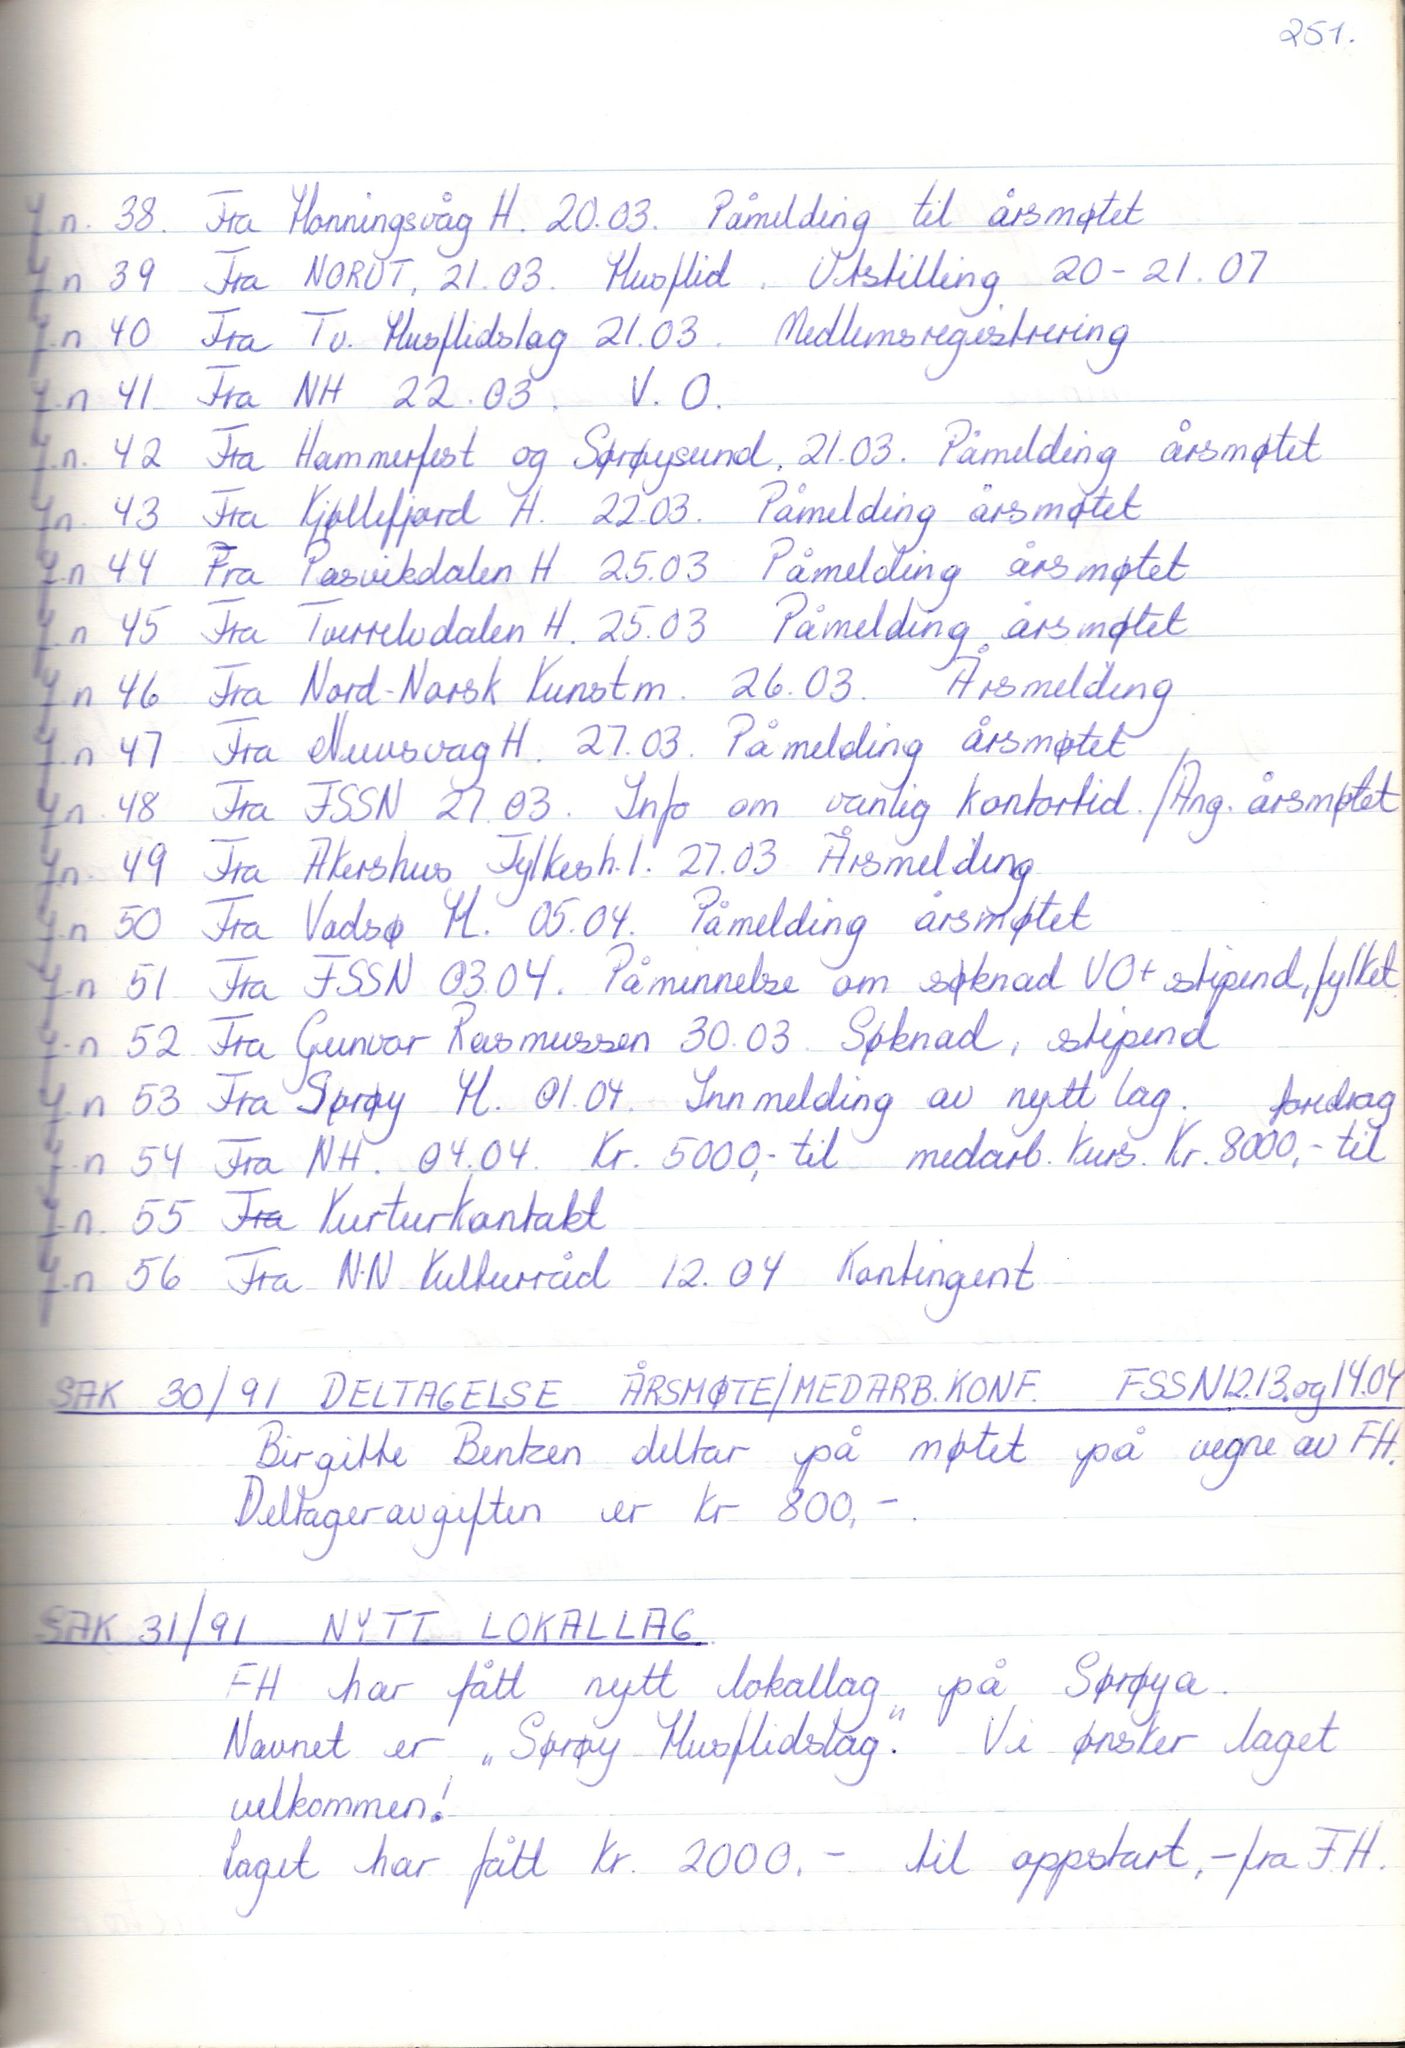 251.
J.n. 38. Fra Honningsvåg H. 20.03. Påmelding til årsmøtet
J.n 39 Fra NORUT, 21.03. Husflid. Utstilling 20-21.07
J.n 40 Fra Tv. Husflidslag 21.03. Medlemsregistrering
J.n 41 Fra NH 22.03. V.O.
J.n. 42 Fra Hammerfest og Sørøysund, 21.03. Påmelding årsmøtet
J.n. 43 Fra Kjøllefjord H. 22.03. Påmelding årsmøtet
J.n 44 Fra Pasvikdalen H 25.03 Påmelding årsmøtet
J.n 45 Fra Tverrelvdalen H. 25.03 Påmelding årsmøtet
J.n 46 Fra Nord-Norsk Kunstm. 26.03. Årsmelding
J.n 47 Fra Nuvsvåg H. 27.03. Påmelding årsmøtet
J.n. 48 Fra FSSN 27.03. Info om vanlig kontortid./Ang. årsmøtet
J.n. 49 Fra Akershus Fylkesh.l. 27.03 Årsmelding
J.n 50 Fra Vadsø H. 05.04. Påmelding årsmøtet
J.n 51 Fra FSSN 03.04. Påminnelse om søknad VO+ stipend, fylket.
J.n 52 Fra Gunvor Rasmussen 30.03 Søknad, stipend
J.n 53 Fra Sørøy H. 01.04. Innmelding av nytt lag. foredrag
J.n 54 Fra NH. 04.04. Kr. 5000,- til medarb. kurs. Kr. 8000,- til
J.n. 55 Fra Kurturkontakt
J.n 56 Fra N.N Kulturråd 12.04 Kontingent
SAK 30/91 DELTAGELSE ÅRSMØTE/MEDARB.KONF. FSSN 12.13.og 14.04
Birgitte Bentzen deltar på møtet på vegne av FH.
Deltageravgiften er kr 800,-.
SAK 31/91 NYTT LOKALLAG
FH har fått nytt lokallag på Sørøya.
Navnet er „Sørøy Husflidslag". Vi ønsker laget
velkommen!
Laget har fått kr. 2000,- til oppstart,- fra F.H.